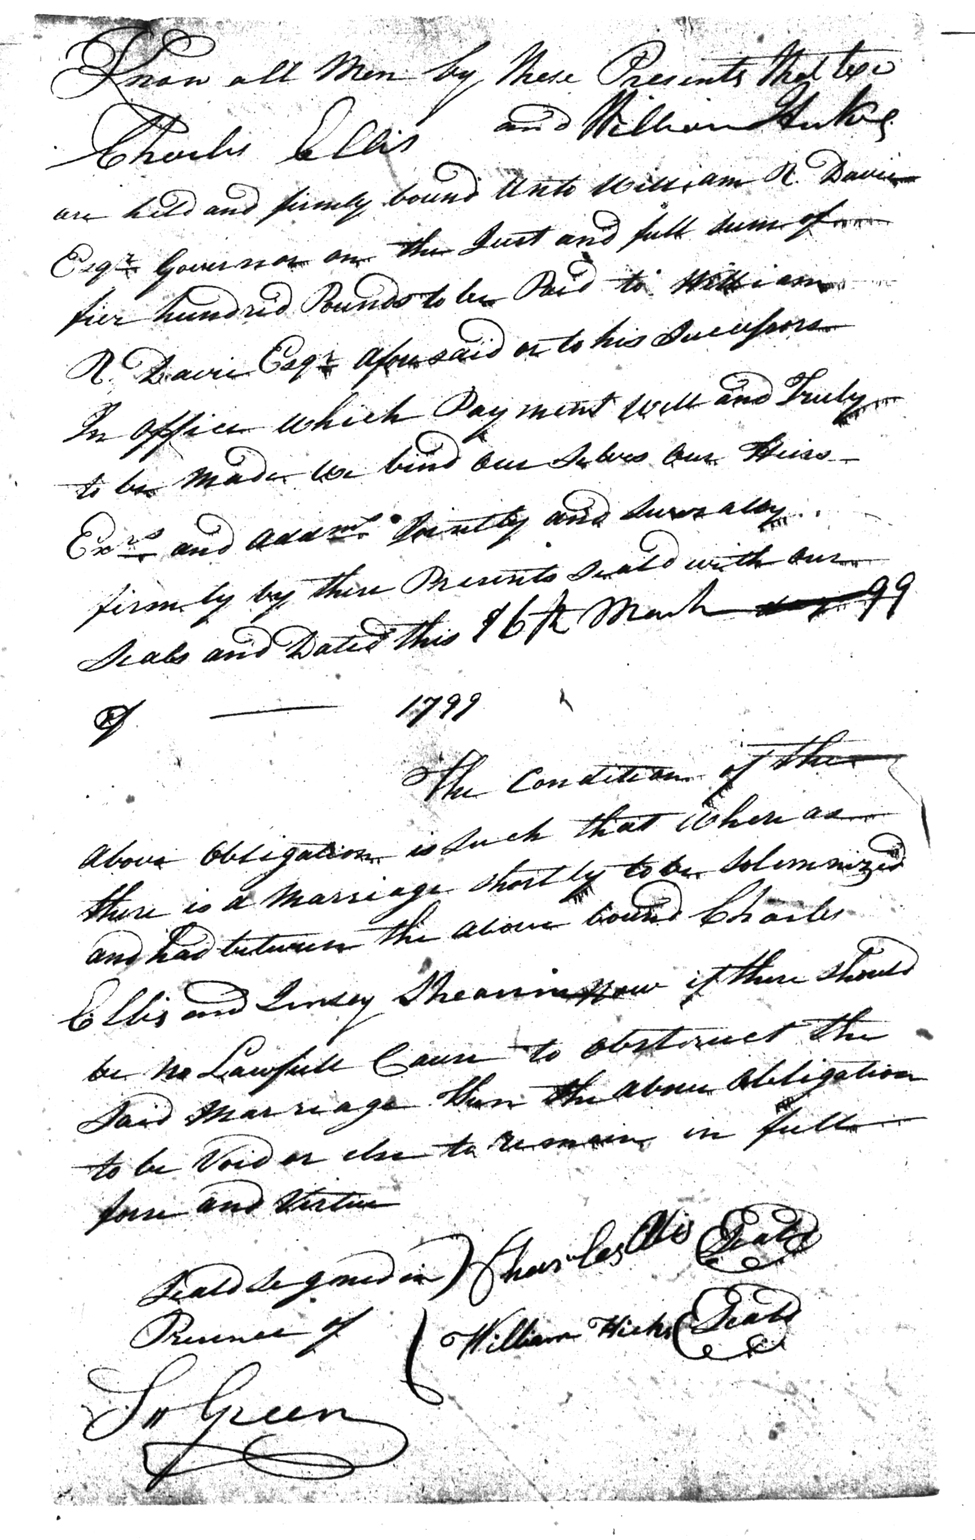 Know all Men by these Presents that we
Charles Ellis and William Hicks
are held and firmly bound unto William R. Davie
Esqr. Governor on the Just and full sum of
five hundred Pounds to be Paid to William
R. Davie Esqr. Aforesaid or to his Successors
In office which Payment Well and Truly
to be made we bind our selves our Heirs
Exrs. and Addms. Jointly and Severally
firmly by these Presents Seald with our
Seals and Dated this 16th March 99
of 1799
The Condition of the
above obligation is Such that whereas
there is a Marriage shortly to be Solemnized
and had between the above bound Charles
Ellis and Linsey Shearin Now if there should
be no Lawfull Cause to obstruct the
Said Marriage then the above obligation
to be Void or else to remain in full
force and Virtue
Seald Signed in Charles Ellis Seal
Presence of William Hicks Seal
Green